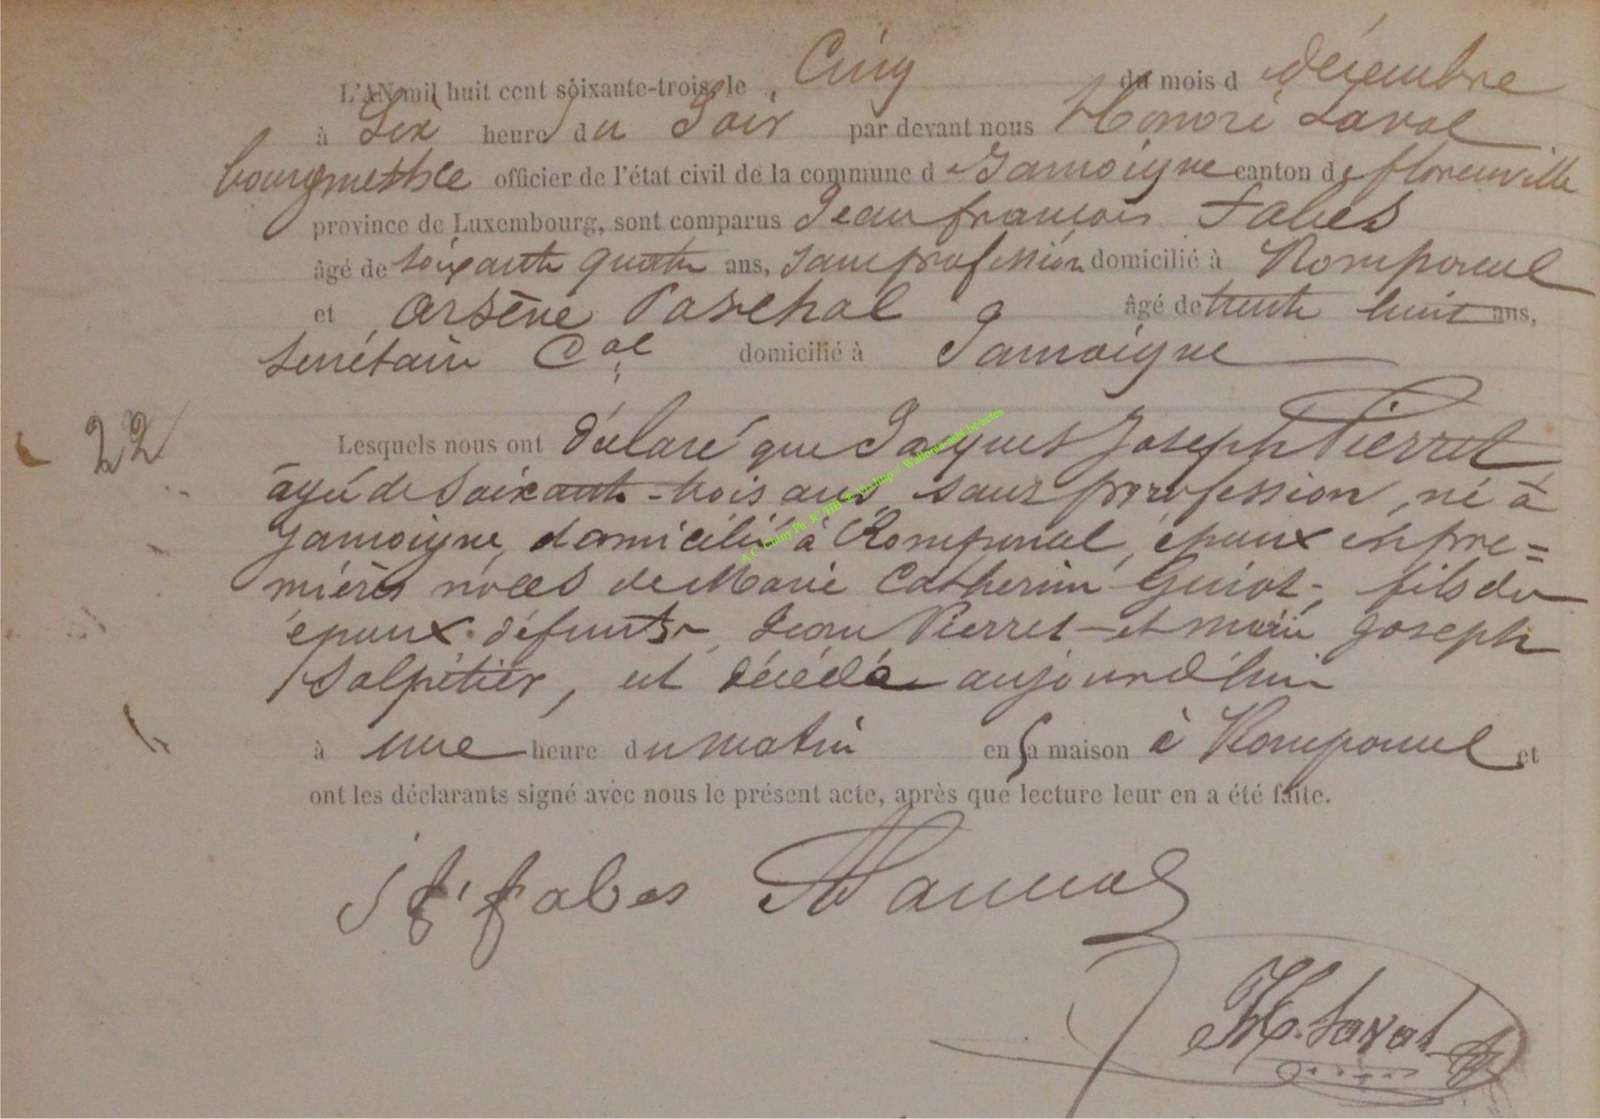 L'AN mil huit cent soixante-trois, le Cinq du mois d décembre
à Six heure du Soir par devant nous Honoré Laval
bourgmestre officier de l'état civil de la commune d Jamoigne canton de florenville
province de Luxembourg, sont comparus Jean françois Fabes
âgé de soixante quatre ans, sans profession domicilié à Romponcel
et Arsène Paschal âgé de trente huit ans,
Secrétaire Cal domicilié à Jamoigne
22
Lesquels nous ont déclaré que Jacques Joseph Pierret
âgé de Soixante-trois ans, sans profession, né à
Jamoigne, domicilié à Romponcel, époux en pre=
mières noces de Marie Catherine Guiot, fils des
époux défunts, Jean Pierret et Marie Joseph
Salpétier, est décédé aujourd'hui
à une heure du matin en sa maison à Romponcel et
ont les déclarants signé avec nous le présent acte, après que lecture leur en a été faite.
J f. fabes
H. Laval